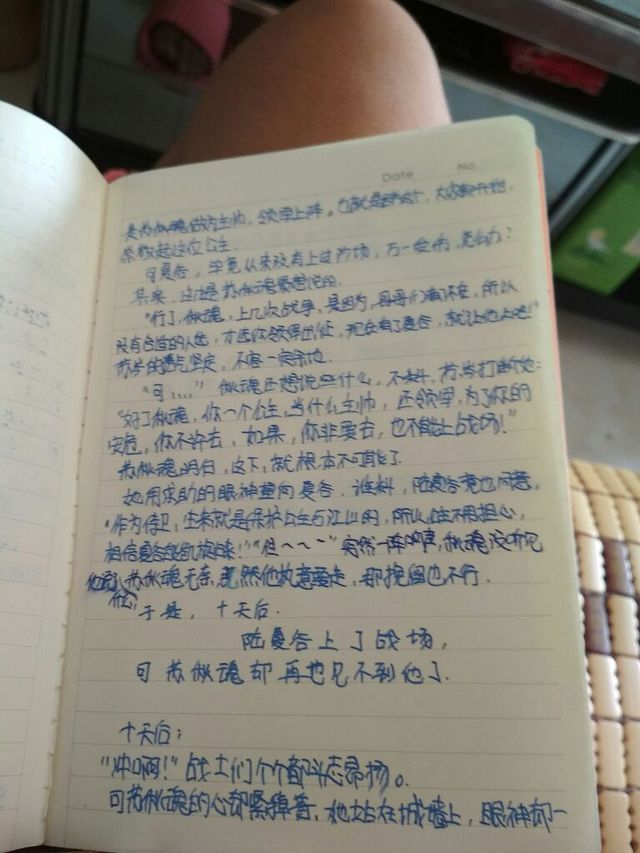 Date No.
做为主帅，领军上阵。也就是
这位公主。
可夏谷，毕竟从来没有上过沙场，万一受伤，怎么办？
其实，这才是苏枞魂最想说的。
“行了，枞魂，上几次战争，是因为，哥哥们不在，所以
没有合适的人选，才选你领军出征，现在有了夏谷，就让他上吧！”
坚定，不容一突余地。
“可、、、、”枞魂还想说些什么，不料，打断她：
“好了枞魂，你一个公主，当什么主帅，还领军，为了你的
安危，你不许去，如果，你非要去，也不能上战场！”
苏枞魂明白，这下，就根本不可能了。
她用求助的眼神望向夏谷，谁料，陆夏谷竟也同意，
“作为侍卫，生来就是保护公主与江山的，所以，公主不用担心，
相信夏谷能凯旋归来！”“但～～～”突然一阵响声，枞魂没听见
他说 苏枞魂无奈，既然他执意要走，那挽留也不行．
什么，
于是，十天后．
陆夏谷上了战场，
可苏枞魂却再也见不到他了．
十天后：
“冲啊！”战士们个个都斗志昂扬。
可苏枞魂的心却紧揪着，她站在城墙上，眼神却一